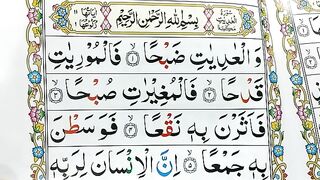 بِسْمِ اللهِ الرَّحْمٰنِ الرَّحِيْمِ
وَالْعٰدِيٰتِ ضَبْحًا ۙ﴿۱﴾ فَالْمُوْرِيٰتِ
قَدْحًا ۙ﴿۲﴾ فَالْمُغِيْرٰتِ صُبْحًا ۙ﴿۳﴾
فَاَثَرْنَ بِهٖ نَقْعًا ۙ﴿۴﴾ فَوَسَطْنَ
بِهٖ جَمْعًا ۙ﴿۵﴾ اِنَّ الْاِنْسَانَ لِرَبِّهٖ